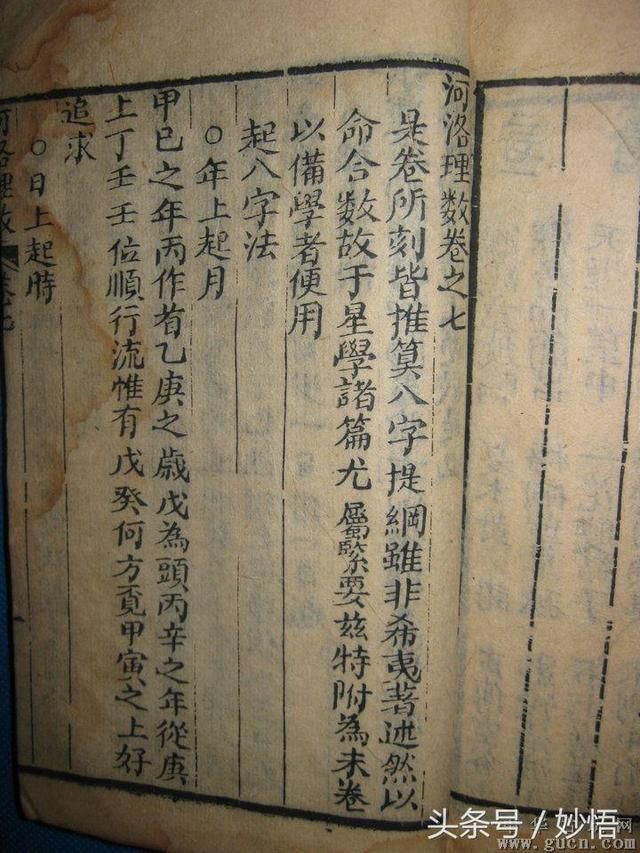 河洛理數卷之七
是卷所刻皆推算八字提綱雖非希夷著述然以
命合數故于星學諸篇尤屬緊要茲特附為末卷
以備學者便用
起八字法
○年上起月
甲巳之年丙作首乙庚之歲戊為頭丙辛之年從庚
上丁壬壬位順行流惟有戊癸何方覓甲寅之上好
追求
○日上起時
河洛理數
头条号 / 妙悟
www.gucn.com